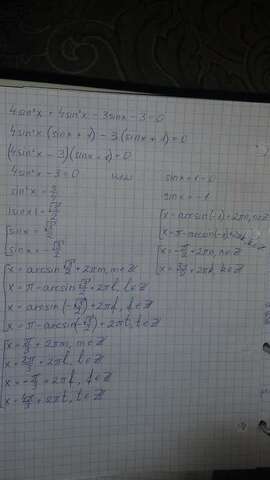 4sin³x + 4sin²x - 3sinx - 3 = 0
4sin²x (sinx + 1) - 3 (sinx + 1) = 0
(4sin²x - 3)(sinx + 1) = 0
4sin²x - 3 = 0 или sinx + 1 = 0
sin²x = 3/4 sinx = -1
|sinx| = √3/2 [x = arcsin(-1) + 2πn, n∈Z
[sinx = √3/2 [x = π - arcsin(-1) + 2πk, k∈Z
[sinx = -√3/2 [x = -π/2 + 2πn, n∈Z
[x = 3π/2 + 2πk, k∈Z
[x = arcsin √3/2 + 2πm, m∈Z
[x = π - arcsin √3/2 + 2πl, l∈Z
[x = arcsin(-√3/2) + 2πf, f∈Z
[x = π - arcsin(-√3/2) + 2πt, t∈Z
[x = π/3 + 2πm, m∈Z
[x = 2π/3 + 2πl, l∈Z
[x = -π/3 + 2πf, f∈Z
[x = 4π/3 + 2πt, t∈Z